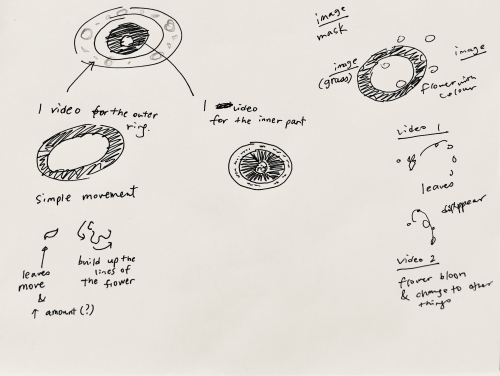 1 video for the outer
ring.
simple movement
leaves
move
&
↑ amount (?)
build up the
lines of
the flower
1 video
for the inner part
image
mask
image
(grass)
image
flower with
colour
video 1
leaves
disappear
video 2
flower bloom
& change to other
things